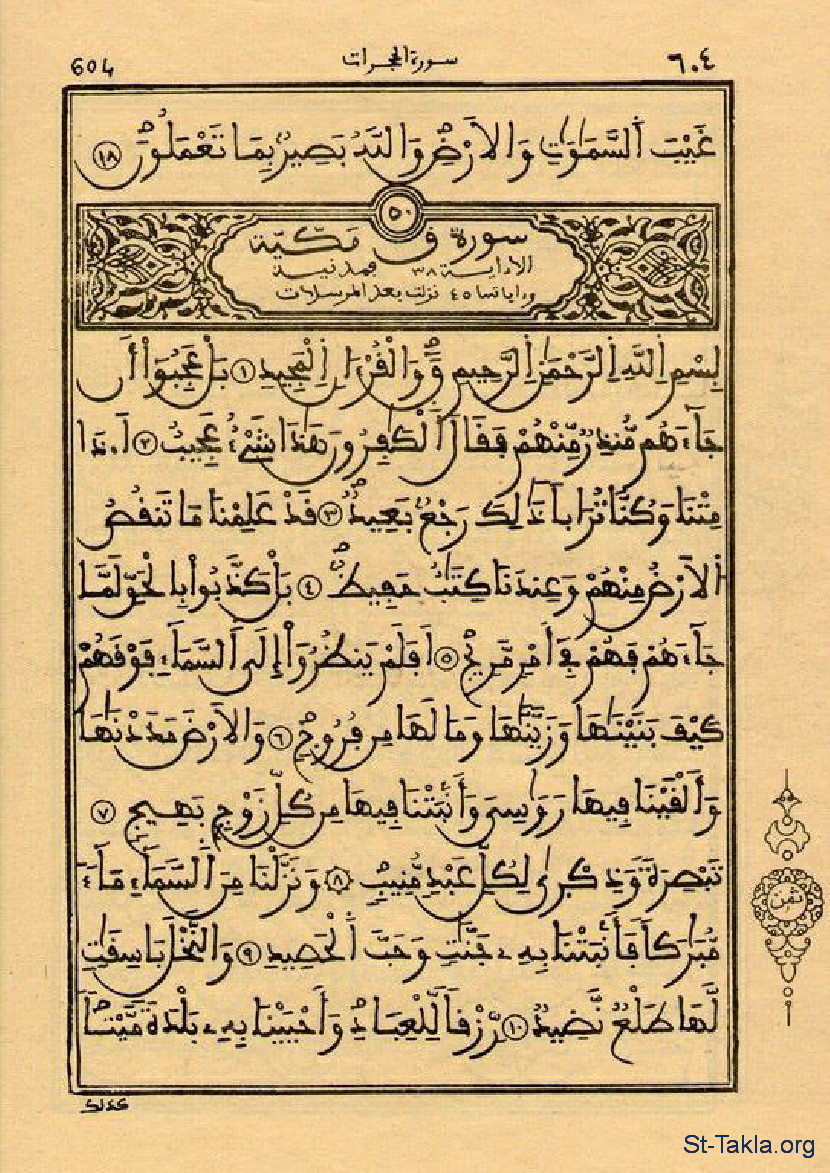 604 سورة الحجرات ٦٠٤
غَيْبَ اَ۬لسَّمَٰوَٰتِ وَالَارْضِۖ وَاللَّهُ بَصِيرُۢ بِمَا تَعْمَلُونَۖ ١٨
٥٠
سورة ق مكية
الا داية ٣٨ فمدنية
وداياتها ٤٥ نزلت بعد المرسلات
بِسْمِ اِ۬للَّهِ اِ۬لرَّحْمَٰنِ اِ۬لرَّحِيمِ قَۖ وَالْقُرْءَانِ اِ۬لْمَجِيدِ ١ بَلْ عَجِبُوٓاْ أَن
جَآءَهُم مُّنذِرٞ مِّنْهُمْ فَقَالَ اَ۬لْكَٰفِرُونَ هَٰذَا شَےْءٌ عَجِيبٌ ٢ اَ.ذَا
مِتْنَا وَكُنَّا تُرَاباٗ ذَٰلِكَ رَجْعُۢ بَعِيدٞۖ ٣ قَدْ عَلِمْنَا مَا تَنقُصُ
اُ۬لَارْضُ مِنْهُمْ وَعِندَنَا كِتَٰبٌ حَفِيظُۢۖ ٤ بَلْ كَذَّبُواْ بِالْحَقِّ لَمَّا
جَآءَهُمْ فَهُمْ فِےٓ أَمْرٖ مَّرِيجٍۖ ٥ اَفَلَمْ يَنظُرُوٓاْ إِلَى اَ۬لسَّمَآءِ فَوْقَهُمْ
كَيْفَ بَنَيْنَٰهَا وَزَيَّنَّٰهَا وَمَا لَهَا مِن فُرُوجٖۖ ٦ وَالَارْضَ مَدَدْنَٰهَا
وَأَلْقَيْنَا فِيهَا رَوَٰسِيَ وَأَنۢبَتْنَا فِيهَا مِن كُلِّ زَوْجِۢ بَهِيجٖ ٧
تَبْصِرَةٗ وَذِكْر۪يٰ لِكُلِّ عَبْدٖ مُّنِيبٖۖ ٨ وَنَزَّلْنَا مِنَ اَ۬لسَّمَآءِ مَآءٗ
مُّبَٰرَكاٗ فَأَنۢبَتْنَا بِهِۦ جَنَّٰتٖ وَحَبَّ اَ۬لْحَصِيدِ ٩ وَالنَّخْلَ بَاسِقَٰتٖ
لَّهَا طَلْعٞ نَّضِيدٞ ١٠ رِّزْقاٗ لِّلْعِبَادِۖ وَأَحْيَيْنَا بِهِۦ بَلْدَةٗ مَّيْتاٗۖ
ثمن
كذلك
St-Takla.org